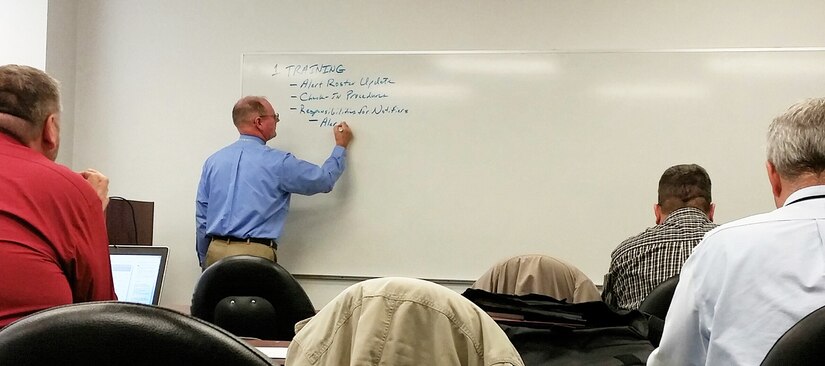 1 TRAINING
- Alert Roster Update
- Check-In Procedures
- Responsibilities for Notifiers
- Aler